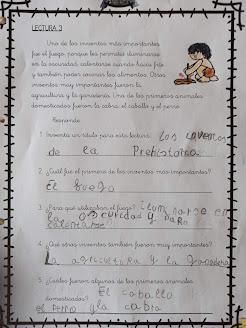 LECTURA 3
Uno de los inventos más importantes
fue el fuego, porque les permitía iluminarse
en la oscuridad, calentarse cuando hacía frío
y también poder cocinar los alimentos. Otros
inventos muy importantes fueron la
agricultura y la ganadería. Uno de los primeros animales
domesticados fueron la cabra, el caballo y el perro.
Responde
1. Inventa un título para esta lectura: Los inventos
de la Prehistoria
2. ¿Cuál fue el primero de los inventos más importantes?
El fuego
3. ¿Para qué utilizaban el fuego? Iluminarse en
la oscuridad y para
calentarse
4. ¿Qué otros inventos también fueron muy importantes?
La agricultura y la ganadería
5. ¿Cuáles fueron algunos de los primeros animales
domesticados? El caballo
el perro y la cabra